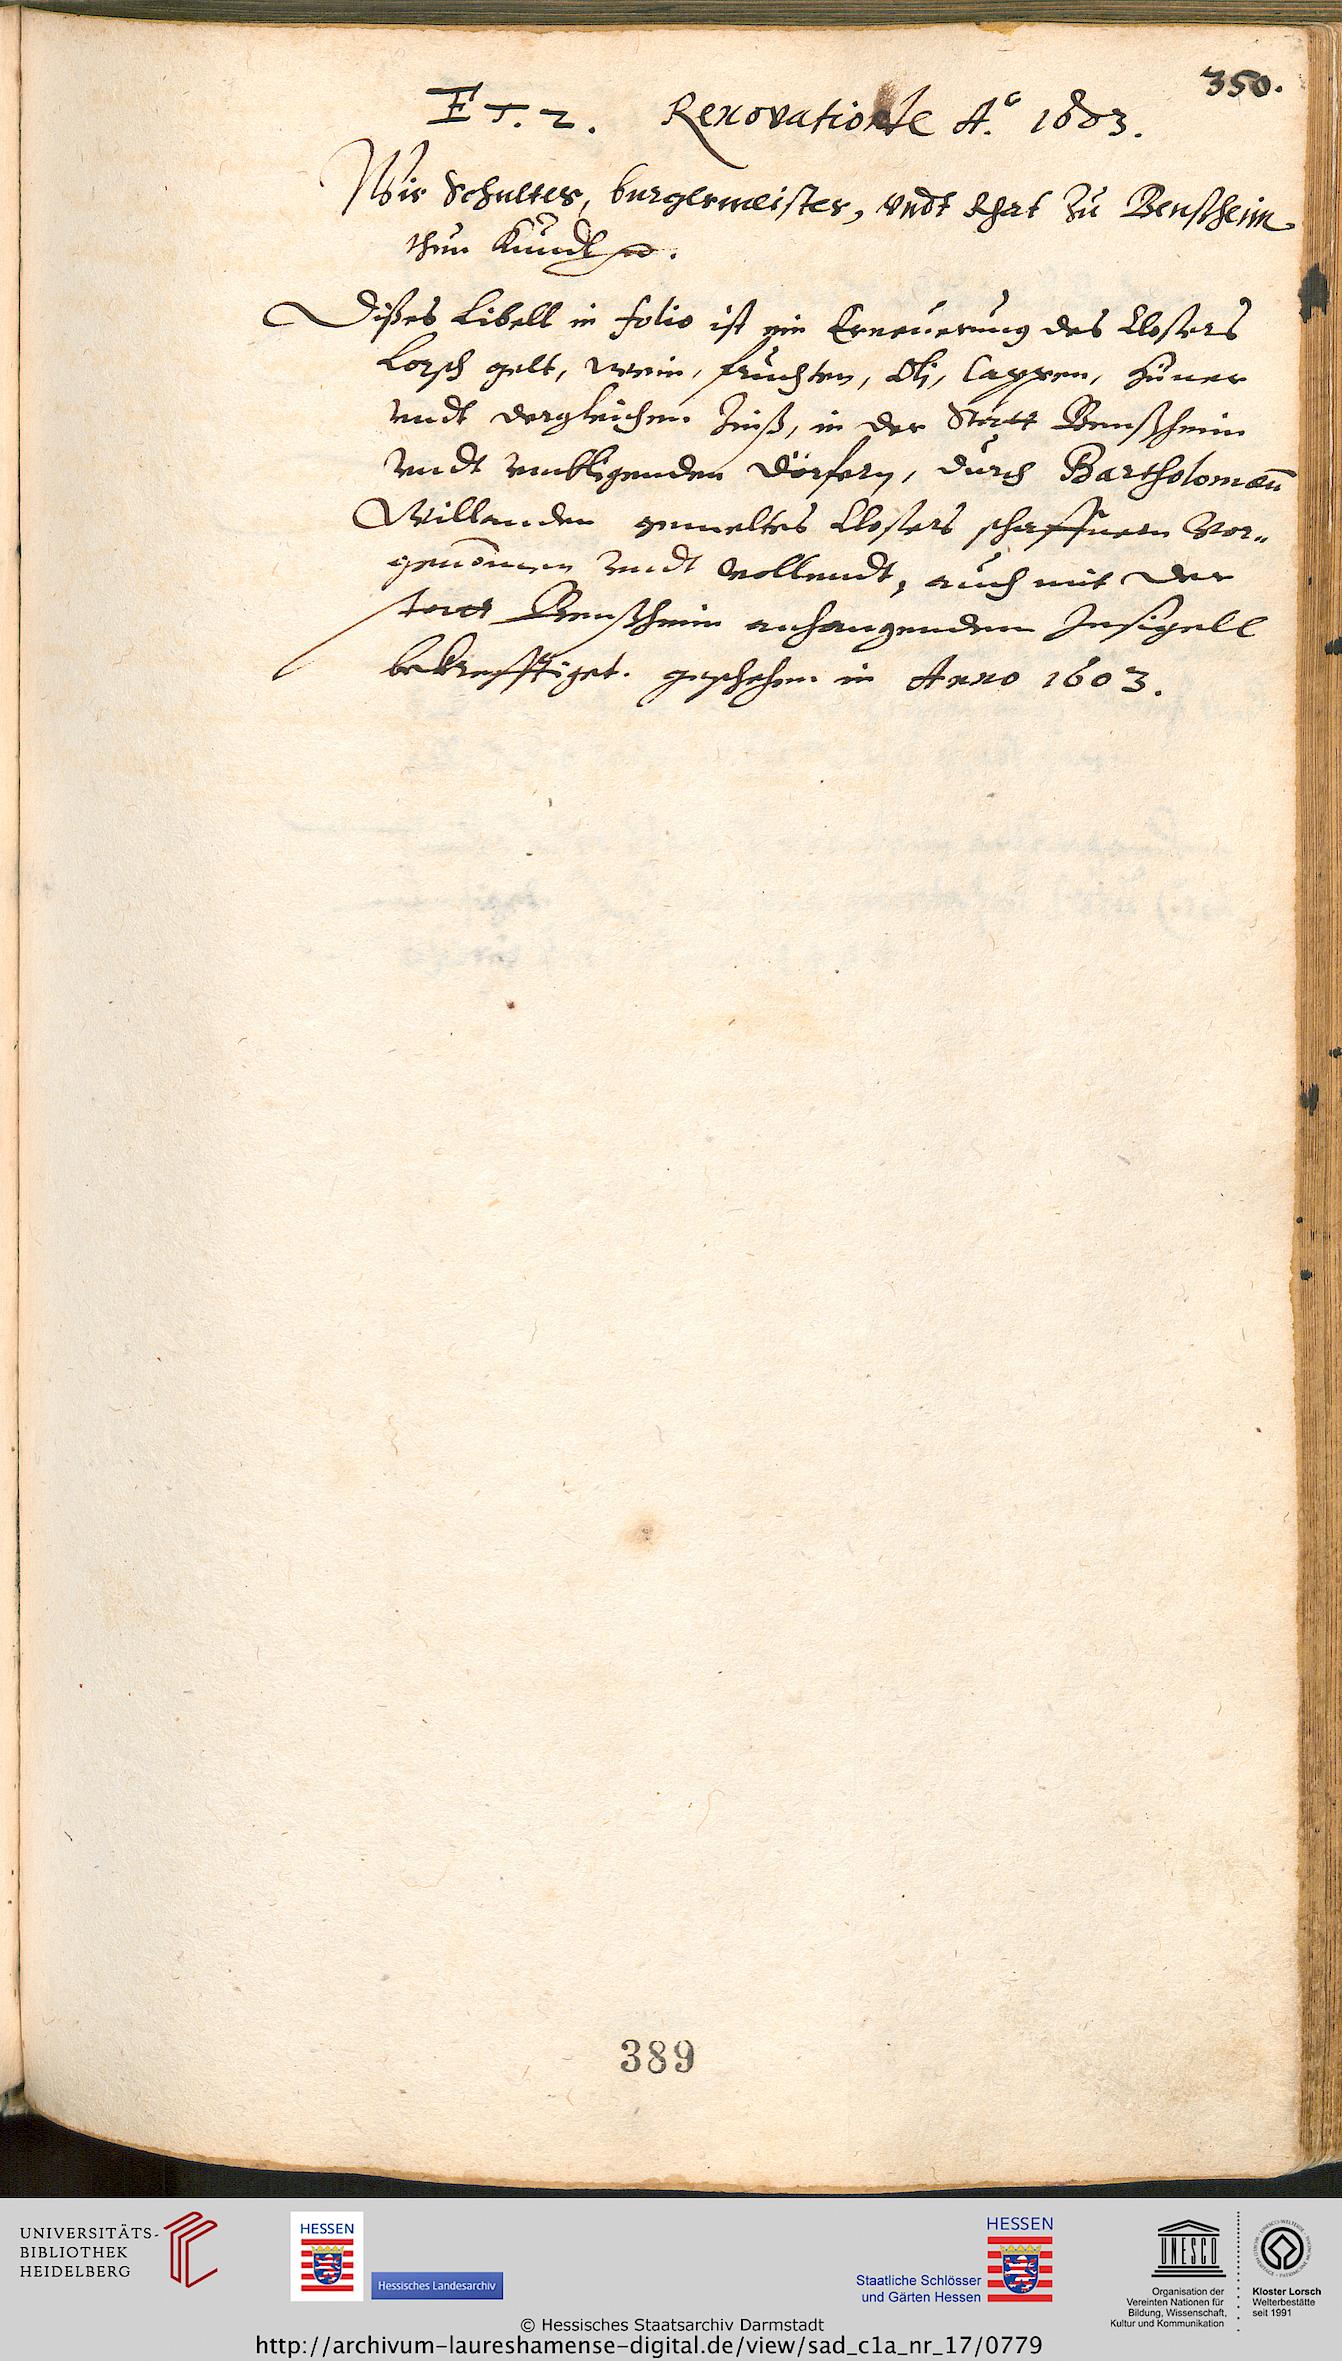 350.
E T. 2. Renovation de A.º 1603.
Wir Schultes, burgermeister, vndt Rhat zu Bensheim
thun kundt
Dißes Libell in folio ist ein Erneuerung des Closters
Lorsch gelt, wein, früchten, Olj, Cappen, hüner
vndt dergleichen Zinß, in der Statt Benßheim
vndt vmbligenden dörfern, durch Bartholomæu̅
Willanden gemeltes Closters schaffnern vor„
geno̅men vndt vollendt, auch mit der
statt Benßheim anhangendem Insigell
bekrefftiget. geschehen in Anno 1603.
389
UNIVERSITÄTS-
BIBLIOTHEK
HEIDELBERG
HESSEN
Hessisches Landesarchiv
HESSEN
Staatliche Schlösser
und Gärten Hessen
UNESCO
Organisation der
Vereinten Nationen für
Bildung, Wissenschaft,
Kultur und Kommunikation
Kloster Lorsch
Welterbestätte
seit 1991
© Hessisches Staatsarchiv Darmstadt
http://archivum-laureshamense-digital.de/view/sad_c1a_nr_17/0779